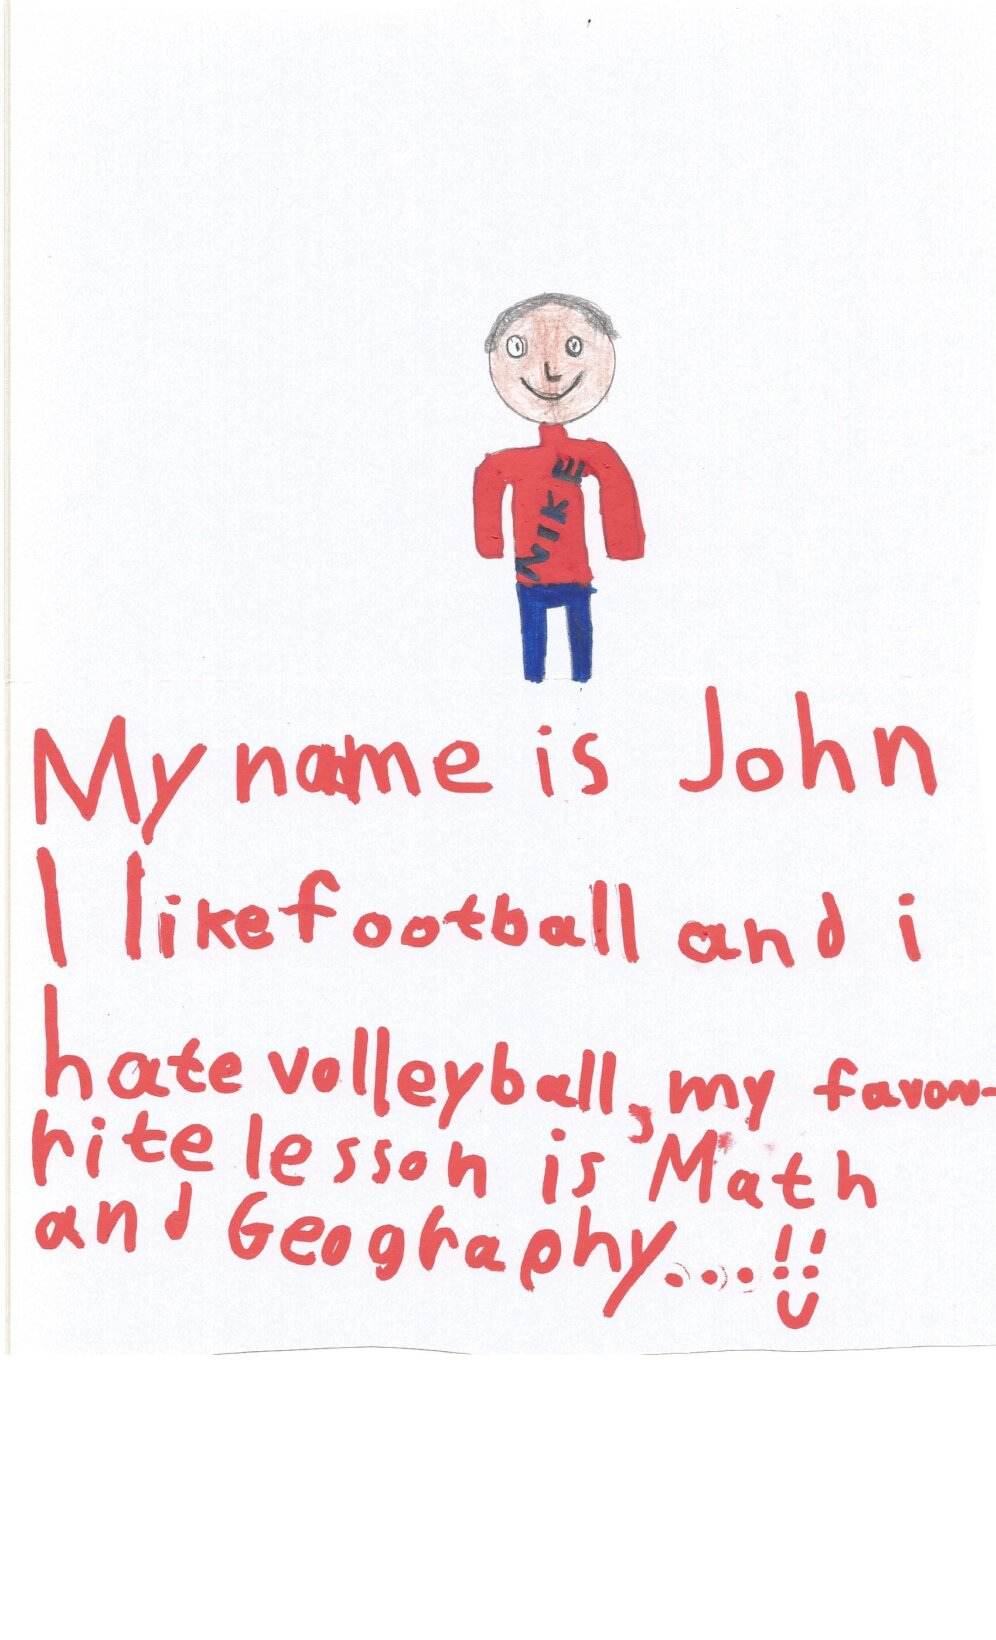 NIKE
My name is John
I like football and i
hate volleyball, my favou-
rite lesson is Math
and Geography...!!